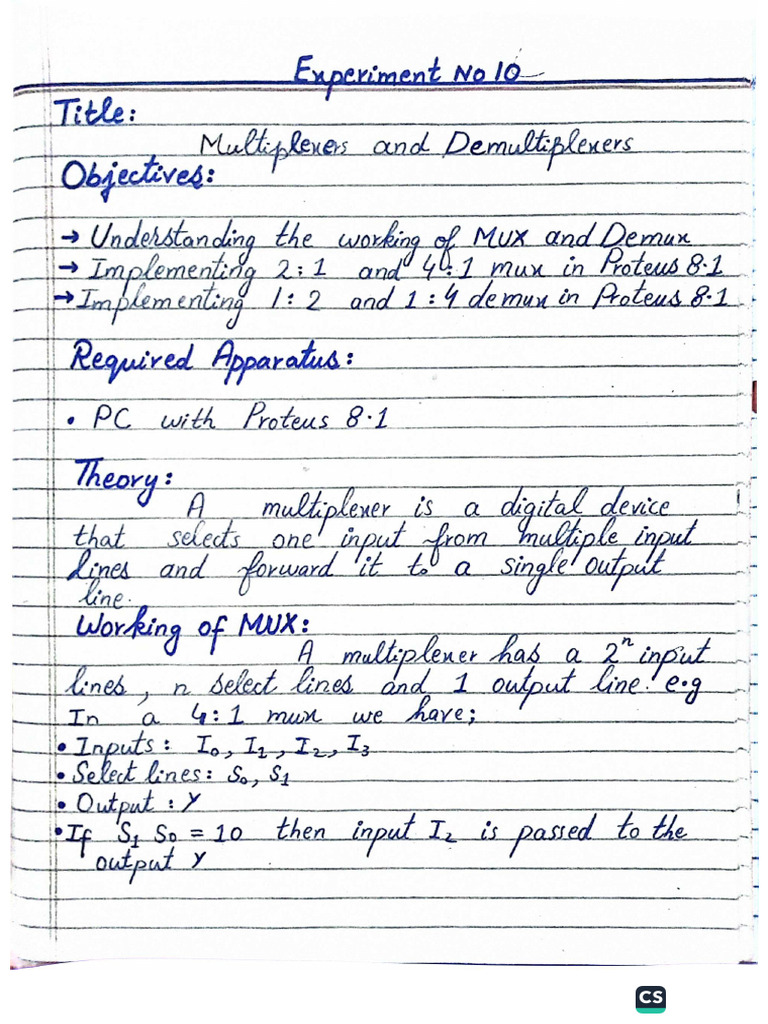 Experiment No 10
Title:
Multiplexers and Demultiplexers
Objectives:
→ Understanding the working of MUX and Demux
→ Implementing 2:1 and 4:1 mux in Proteus 8.1
→ Implementing 1:2 and 1:4 demux in Proteus 8.1
Required Apparatus:
• PC with Proteus 8.1
Theory:
A multiplexer is a digital device
that selects one input from multiple input
lines and forward it to a single output
line.
Working of MUX:
A multiplexer has a 2ⁿ input
lines, n select lines and 1 output line. e.g
In a 4:1 mux we have;
• Inputs: I₀, I₁, I₂, I₃
• Select lines: S₀, S₁
• Output: Y
• If S₁ S₀ = 10 then input I₂ is passed to the
output Y
CS